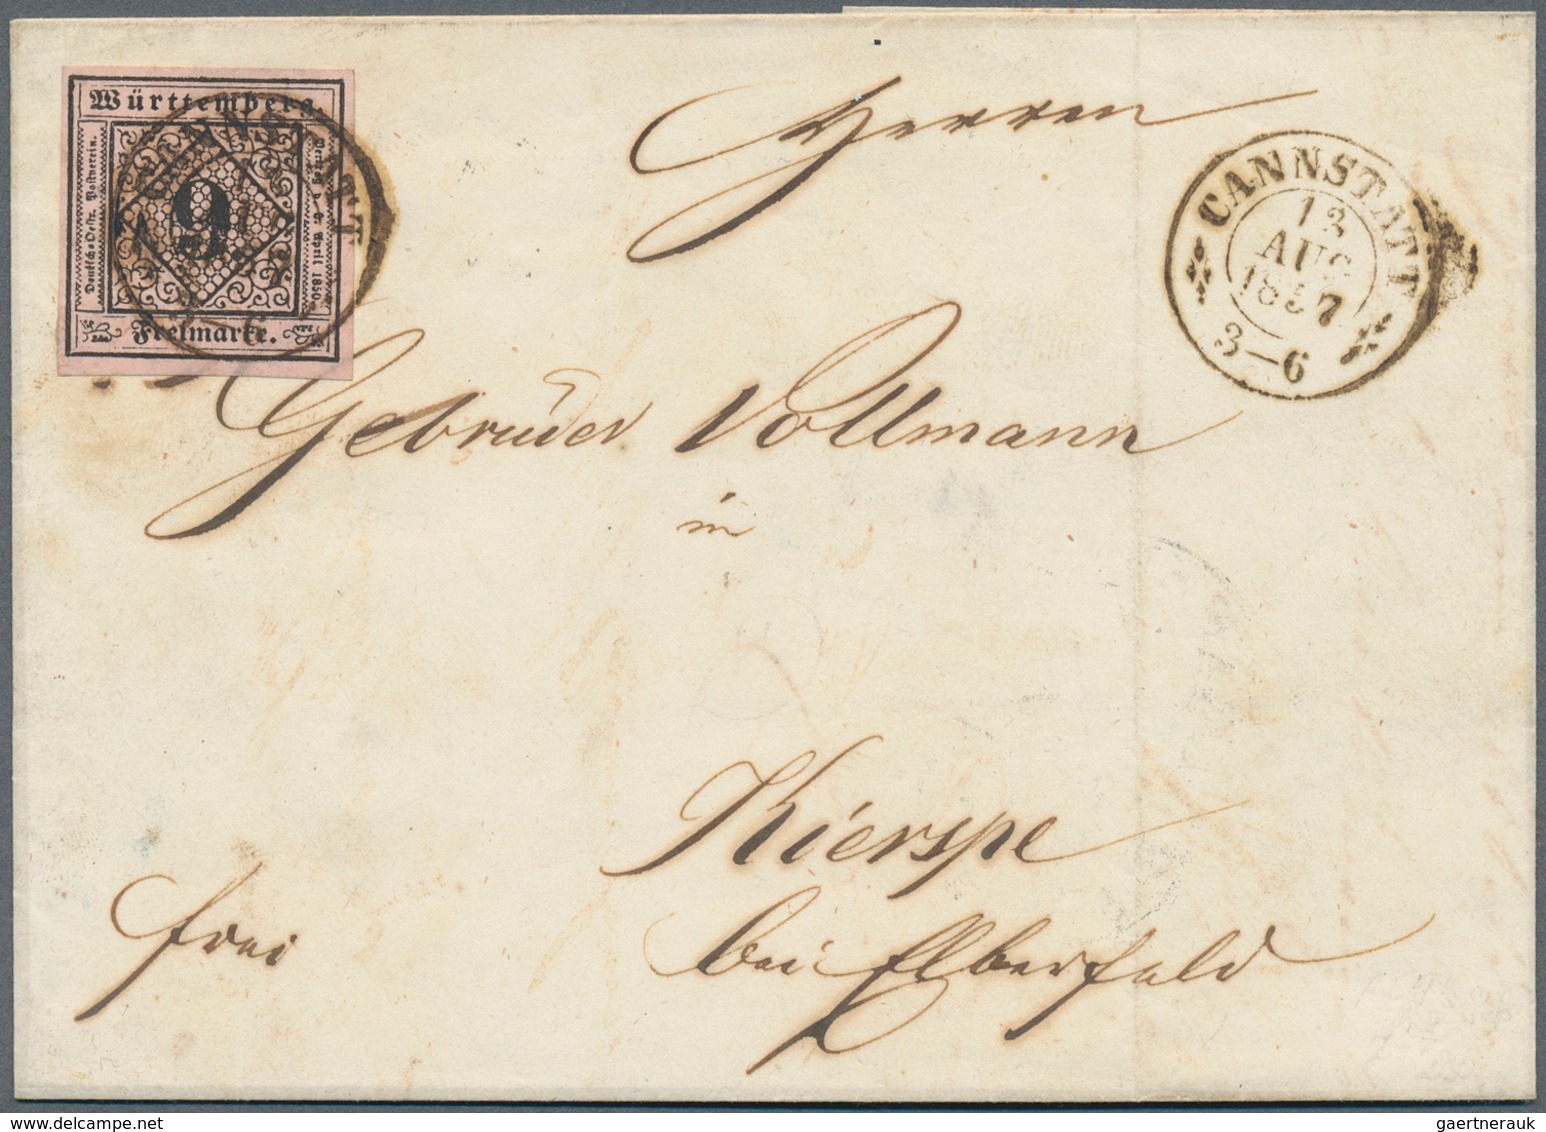 Württemberg.
Deutsch-Oestr. Postverein.
9
Vertrag v. 6. April 1850.
Freimarke.
CANNSTATT
Herren
CANNSTATT
13
AUG
1857
3—6
Gebrüder Vollmann
in
Kierspe
bei Elberfeld
frei
gaertnerauk